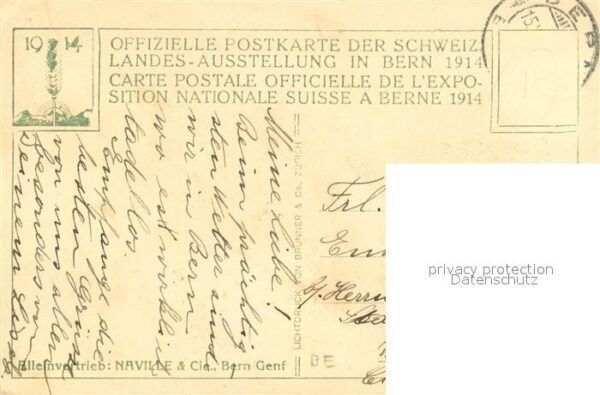 1914
OFFIZIELLE POSTKARTE DER SCHWEIZ.
LANDES-AUSSTELLUNG IN BERN 1914
CARTE POSTALE OFFICIELLE DE L'EXPO-
SITION NATIONALE SUISSE A BERNE 1914
Meine Liebe!
Beim prächtig
sten Wetter sind
wir in Bern
wo es wirklich
tadellos.
Empfange die
besten Grüsse
von uns allen
besonders von
Deinem
LICHTDRUCK VON BRUNNER & Co., ZÜRICH
Frl.
b/. Herrn
BE
privacy protection
Datenschutz
Alleinvertrieb: NAVILLE & Cie., Bern Genf